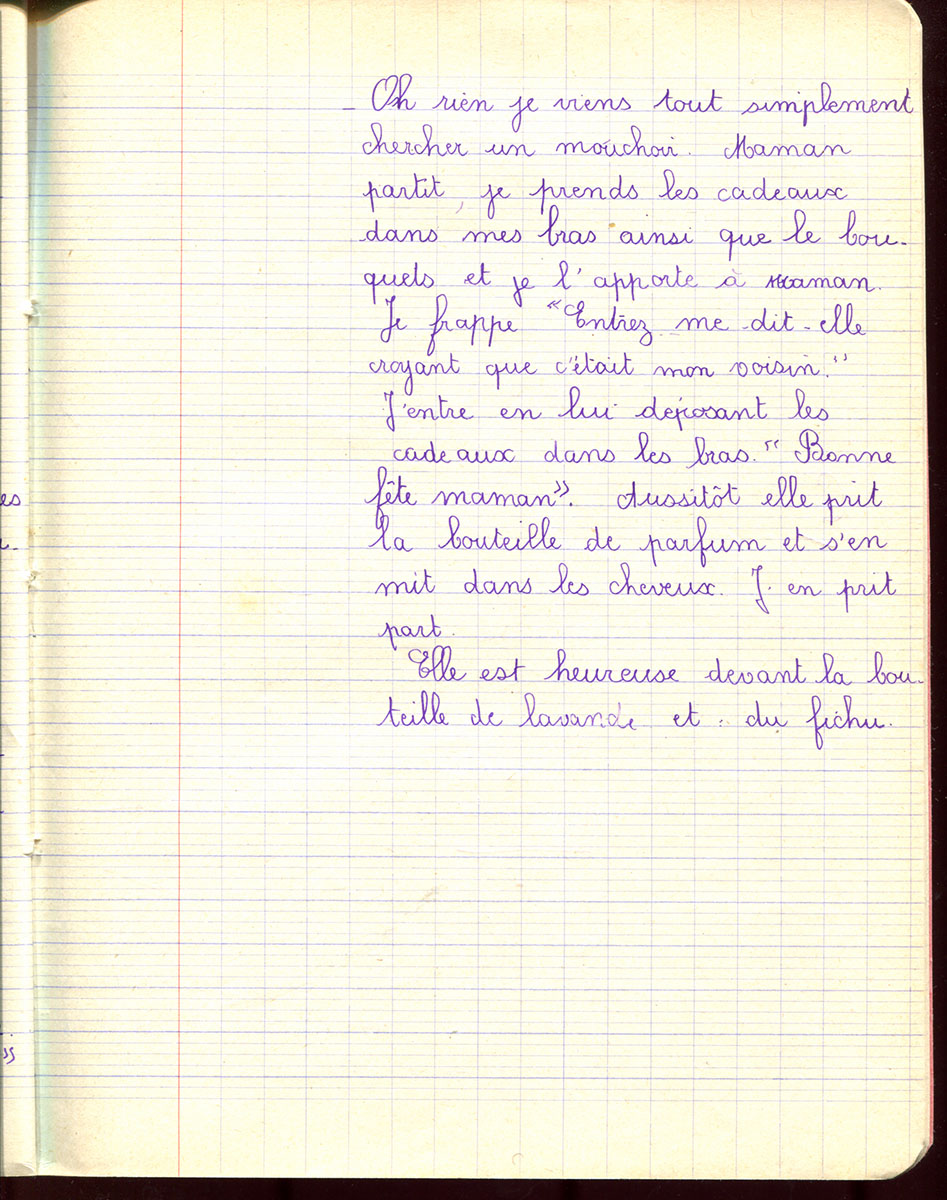 - Oh rien je viens tout simplement
chercher un mouchoir. Maman
partit, je prends les cadeaux
dans mes bras ainsi que le bou-
quets et je l'apporte à maman.
Je frappe "Entrez me dit-elle
croyant que c'était mon voisin."
J'entre en lui déposant les
cadeaux dans les bras. "Bonne
fête maman". Aussitôt elle prit
la bouteille de parfum et s'en
mit dans les cheveux. J'en prit
part.
Elle est heureuse devant la bou-
teille de lavande et du fichu.